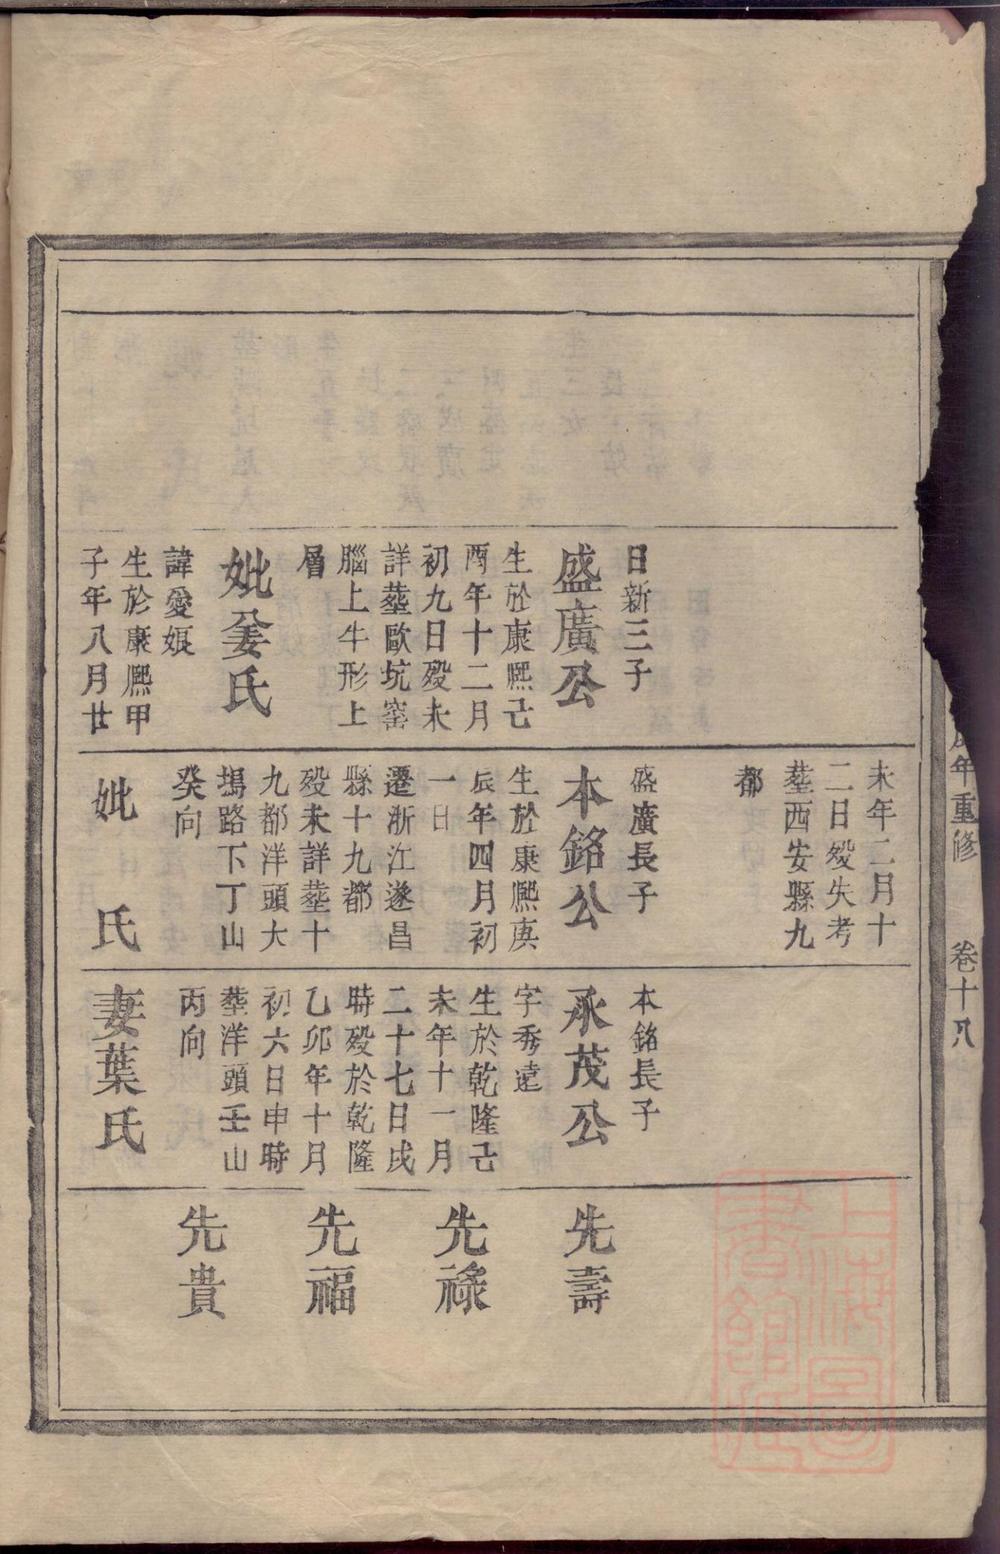 年重修
卷十八
日新三子
盛廣公
生於康熙己
酉年十二月
初九日殁未
詳塟歐坑窑
腦上牛形上
層
妣姜氏
諱愛娘
生於康熙甲
子年八月廿
未年二月十
二日殁失考
塟西安縣九
都
盛廣長子
本銘公
生於康熙庚
辰年四月初
一日
遷浙江遂昌
縣十九都
殁未詳塟十
九都洋頭大
塢路下丁山
癸向
妣 氏
本銘長子
承茂公
字秀遠
生於乾隆己
未年十一月
二十七日戌
時殁於乾隆
乙卯年十月
初六日申時
塟洋頭壬山
丙向
妻葉氏
先壽
先祿
先福
先貴
上海圖
書館藏